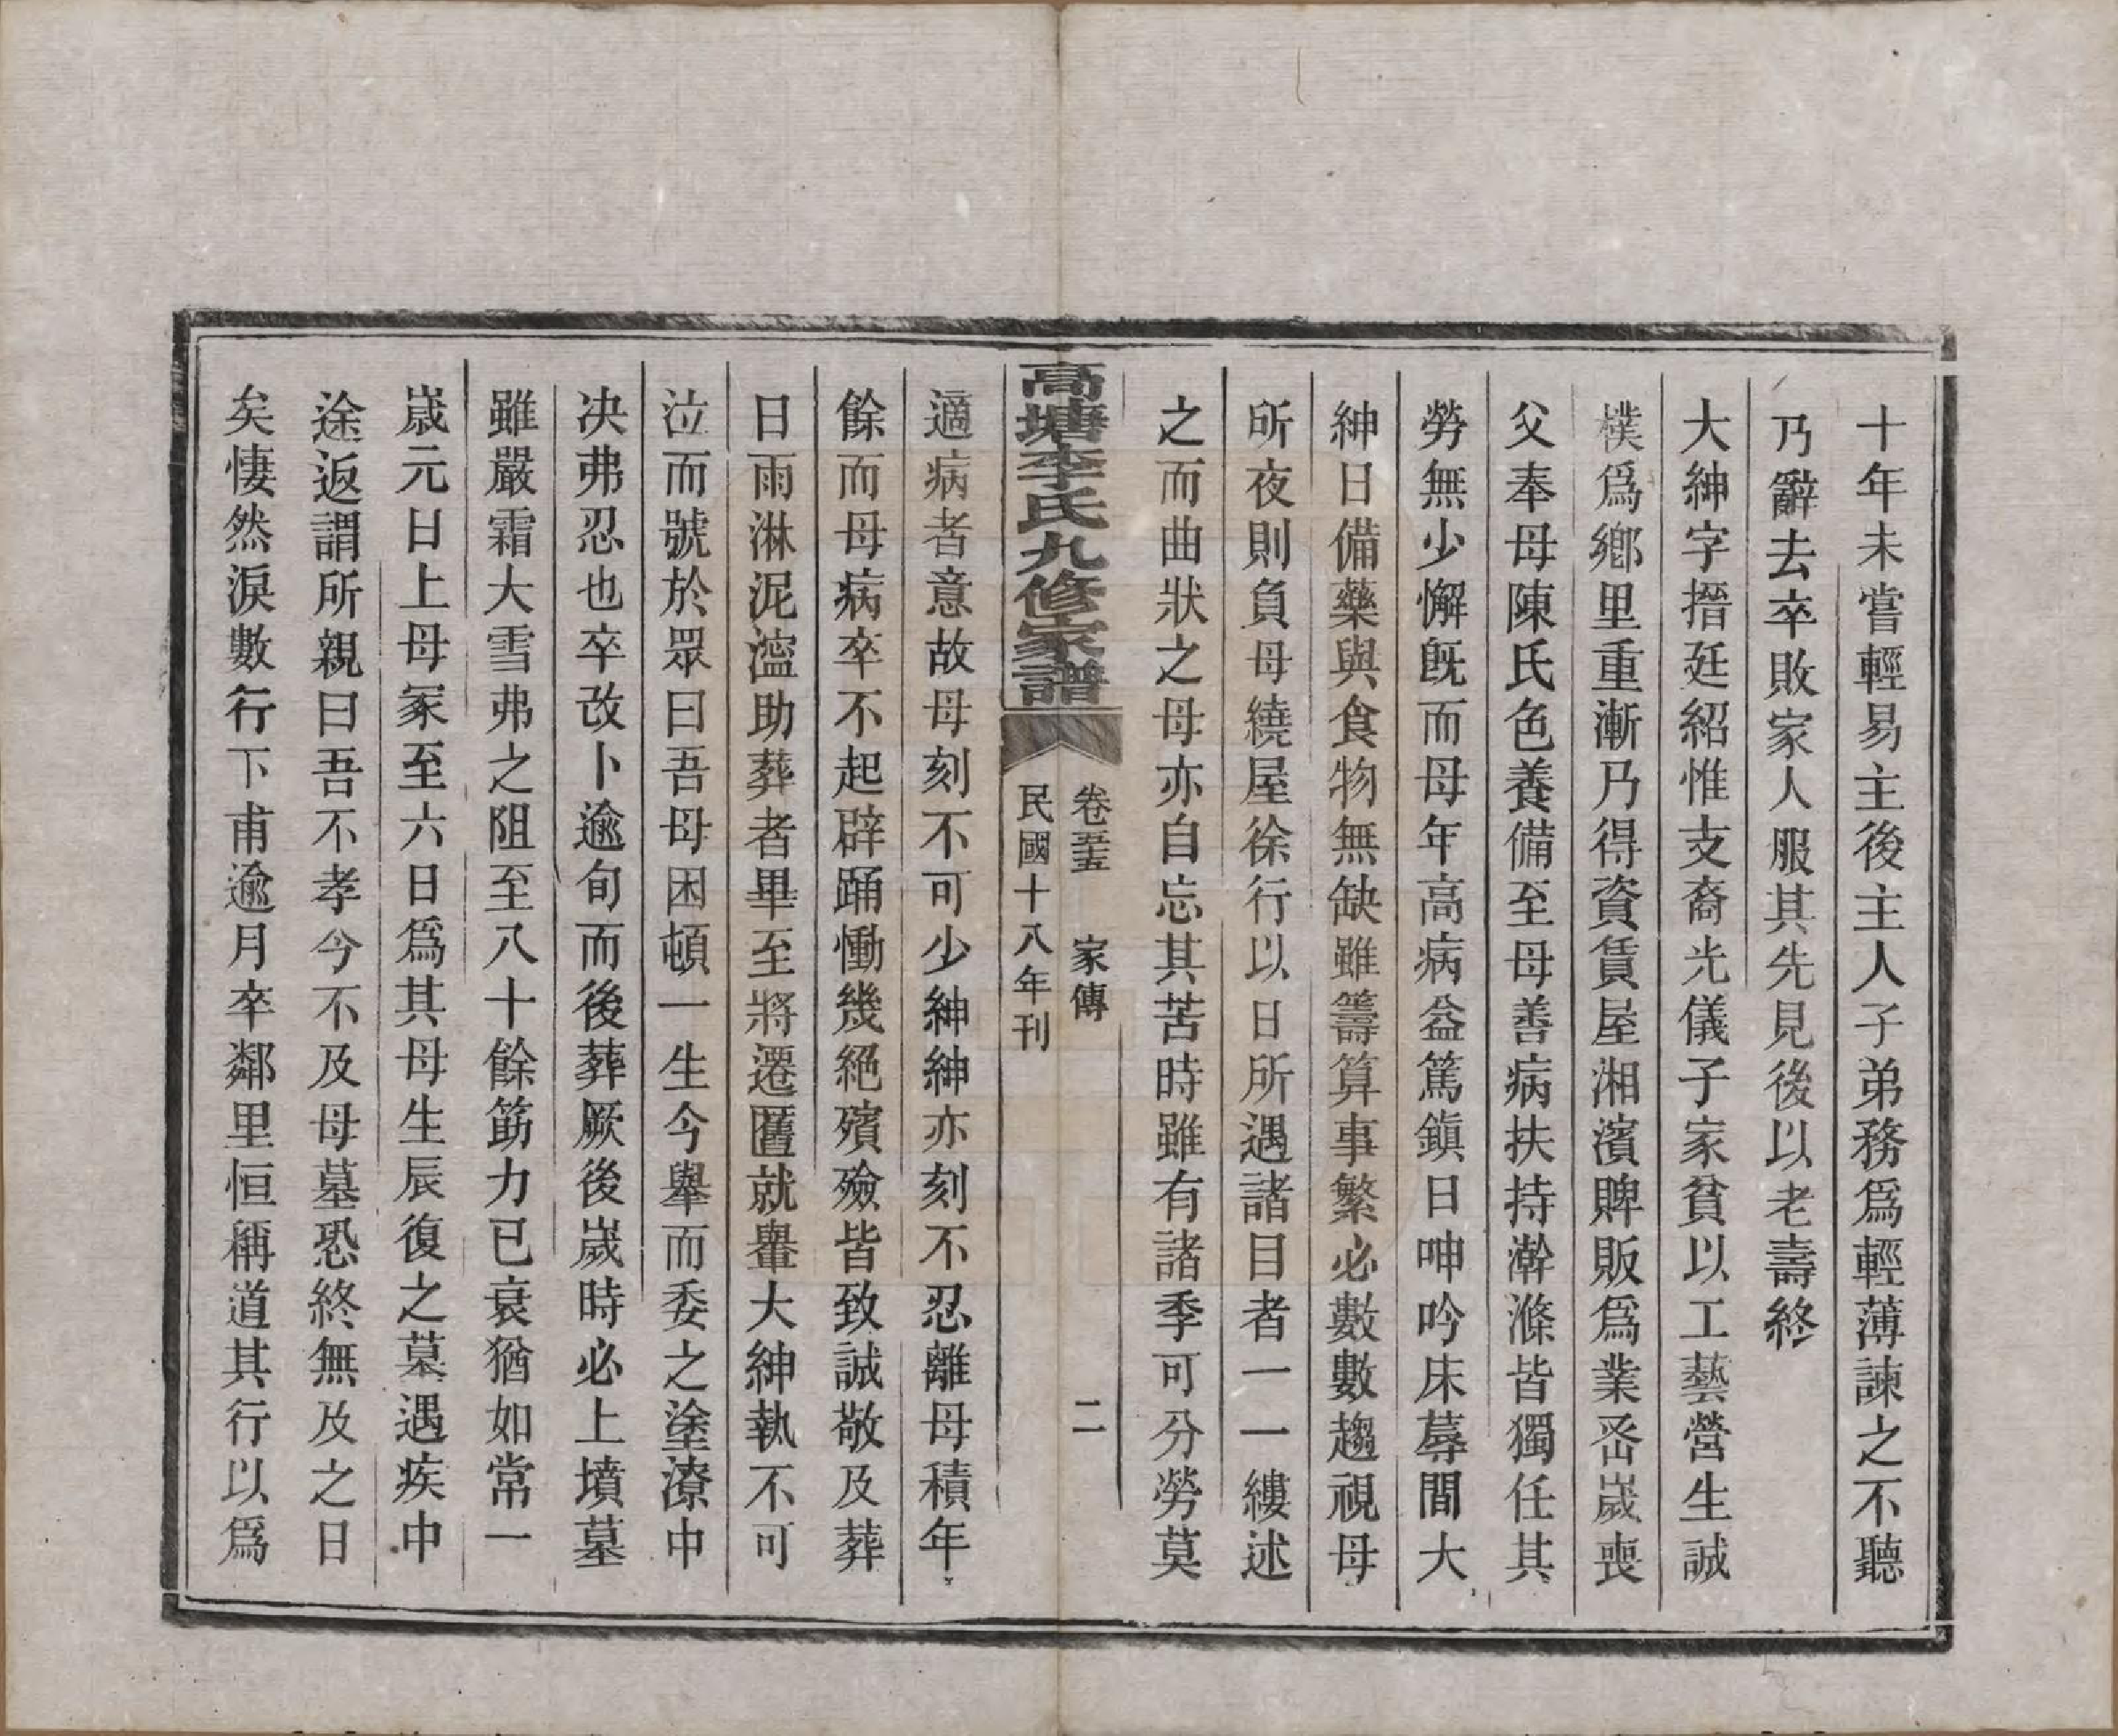 十年未嘗輕易主後主人子弟務爲輕薄諫之不聽
乃辭去卒敗家人服其先見後以老壽終
大紳字搢廷紹惟支裔光儀子家貧以工藝營生誠
樸爲鄉里重漸乃得資賃屋湘濱賣販爲業蚤歲喪
父奉母陳氏色養備至母善病扶持澣滌皆獨任其
勞無少懈旣而母年高病益篤鎭日呻吟床蓐間大
紳日備藥與食物無缺雖籌算事繁必數數趨視母
所夜則負母繞屋徐行以日所遇諸目者一一縷述
之而曲狀之母亦自忘其苦時雖有諸季可分勞莫
高塘李氏九修家譜
卷五 家傳 二
民國十八年刊
適病者意故母刻不可少紳紳亦刻不忍離母積年
餘而母病卒不起辟踊慟幾絕殯殮皆致誠敬及葬
日雨淋泥濫助葬者畢至將遷匶就轝大紳執不可
泣而號於眾曰吾母困頓一生今舉而委之塗潦中
决弗忍也卒改卜逾旬而後葬厥後歲時必上墳墓
雖嚴霜大雪弗之阻至八十餘筋力已衰猶如常一
歲元日上母冢至六日爲其母生辰復之墓遇疾中
途返謂所親曰吾不孝今不及母墓恐終無及之日
矣悽然淚數行下甫逾月卒鄰里恒稱道其行以爲